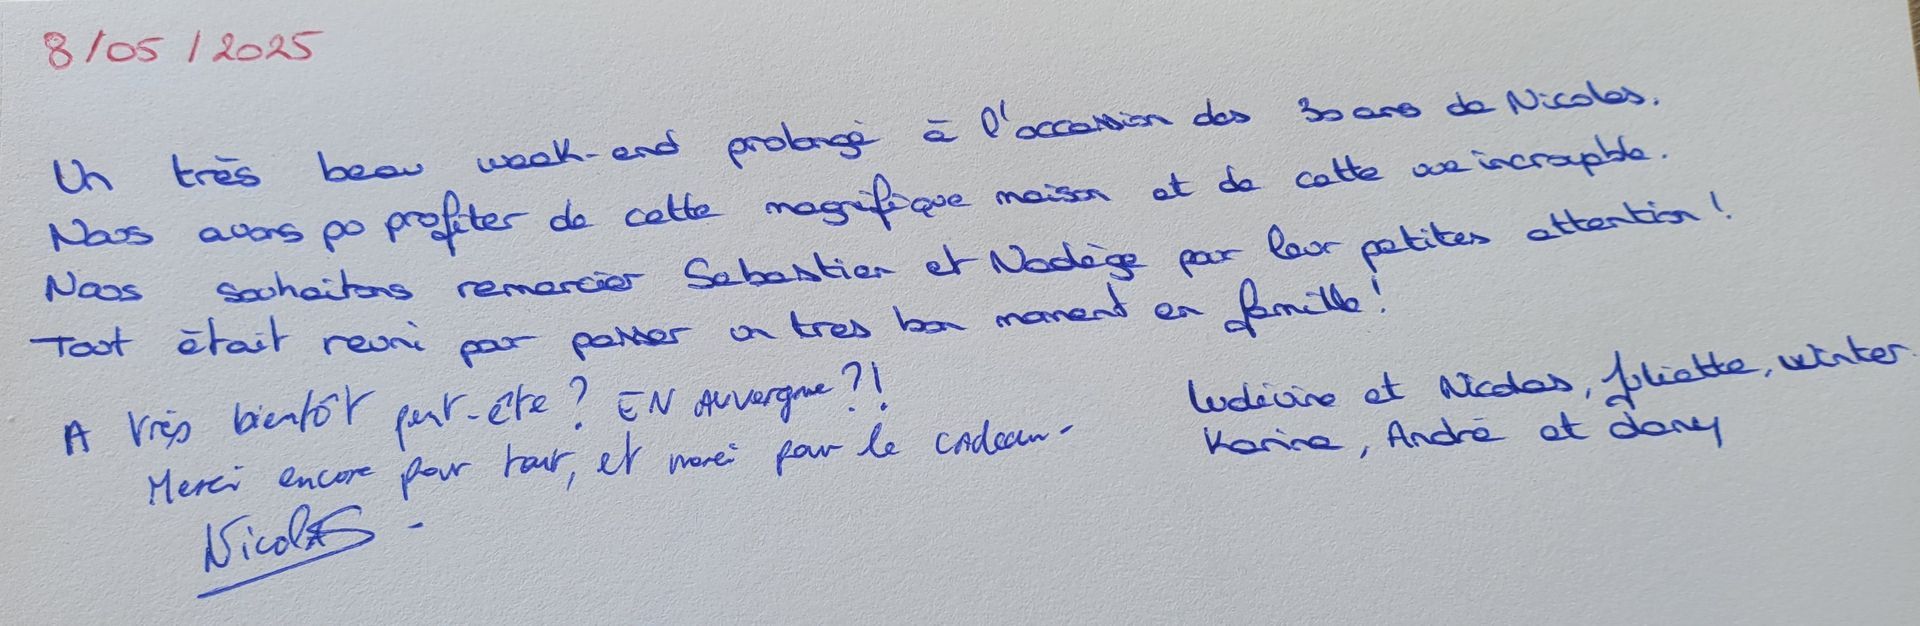 8/05/2025
Un très beau week-end prolongé à l'occasion des 30 ans de Nicolas.
Nous avons pu profiter de cette magnifique maison et de cette vue incroyable.
Nous souhaitons remercier Sebastien et Nadège par leur petites attention !
Tout était reuni pour passer un tres bon moment en famille !
A très bientôt peut-être ? EN AUVergne ?!
Merci encore pour tout, et merci pour le cadeau -
Ludivine et Nicolas, Juliette, Winter
Karine, André et Dany
Nicolas -